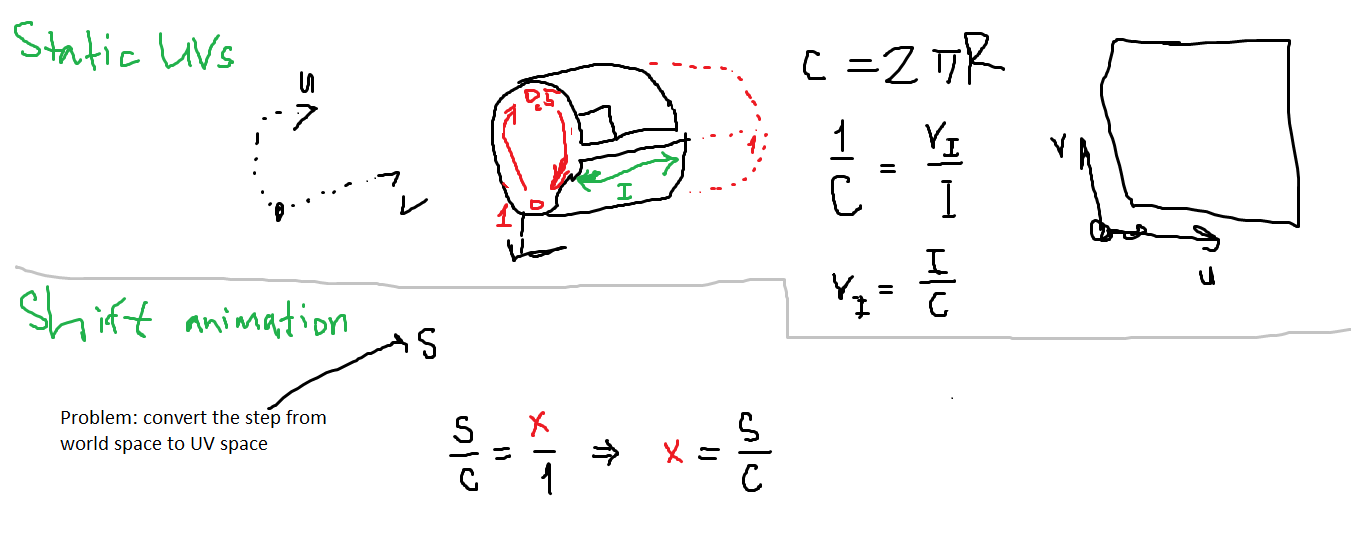 Static UVs
u
v
0.5
0
1
I
1
C = 2πR
1/C = V_I/I
V_I = I/C
v
u
Shift animation
S
Problem: convert the step from
world space to UV space
S/C = x/1 ⇒ x = S/C